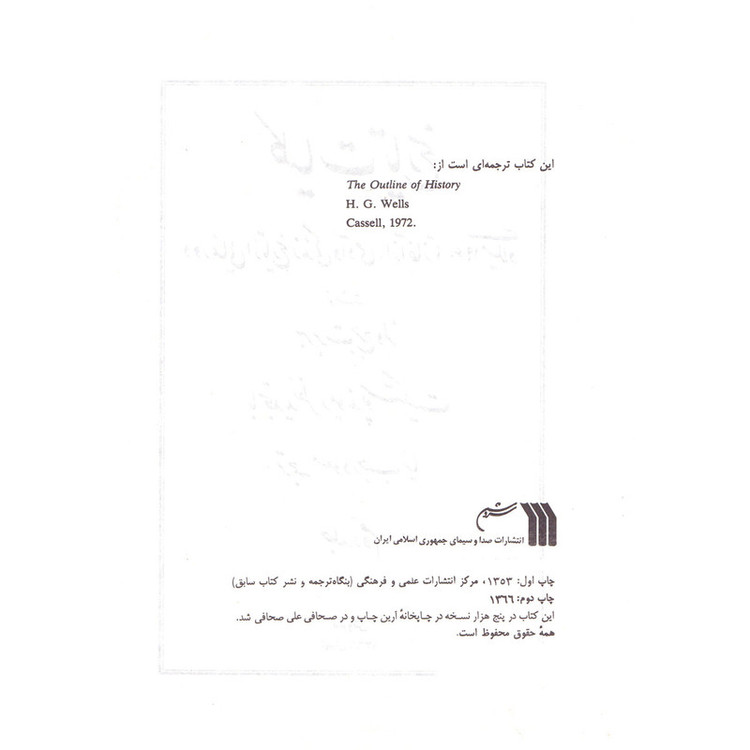 این کتاب ترجمه‌ای است از:
The Outline of History
H. G. Wells
Cassell, 1972.
سروش
انتشارات صدا و سیمای جمهوری اسلامی ایران
چاپ اول: ۱۳۵۳، مرکز انتشارات علمی و فرهنگی (بنگاه ترجمه و نشر کتاب سابق)
چاپ دوم: ۱۳۶۶
این کتاب در پنج هزار نسخه در چاپخانهٔ آرین چاپ و در صحافی علی صحافی شد.
همهٔ حقوق محفوظ است.